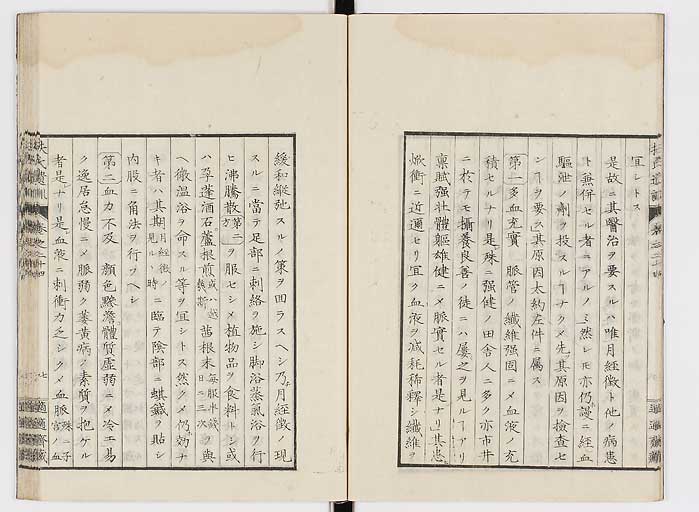 宜シトス
是故ニ其醫治ヲ要スルハ唯月經徴ト他ノ病患
ト無併セル者ニアルノミ然レモ亦仍謾ニ經血
驅泄ノ劑ヲ投スルヿナク先其原因ヲ檢査セ
シヿヲ要ス其原因太約左件ニ屬ス
第一多血充實 脈管ノ纖維强固ニメ血液ノ充
積セルナリ是殊ニ强健ノ田舎人ニ多ク亦市井
ニ於テモ攝養良善ノ徒ニハ屢之ヲ見ルヿアリ
稟賦强壮體軀雄健ニメ脈實セル者是ナリ其患
焮衝ニ近邇セリ宜ク血液ヲ減耗稀釋シ纖維ヲ
緩和縱弛スルノ策ヲ回ラスヘシ乃月經徴ノ現
スルニ當テ足部ニ刺絡ヲ施シ脚浴蒸氣浴ヲ行
ヒ沸騰散第二方ヲ服セシメ植物品ヲ食料トシ或
ハ孕蓬酒石蘆根煎或ハ越幾斯 茜根末毎服半錢日ニ二次ヲ與
ヘ微温浴ヲ命スル等ヲ宜シトス然クメ仍効ナ
キ者ハ其期月經徴ノ見ルヽ時ニ臨テ陰部ニ蜞鍼ヲ貼シ
内股ニ角法ヲ行フヘシ
第二血力不及 顔色黲澹體質虚弱ニメ冷工易
ク逸居怠慢ニメ脈弱ク萎黄病ノ素質ヲ抱ケル
者是ナリ是血液ニ刺衝力乏シクメ血脈殊ニ子宮ノ血
七
適適齋藏